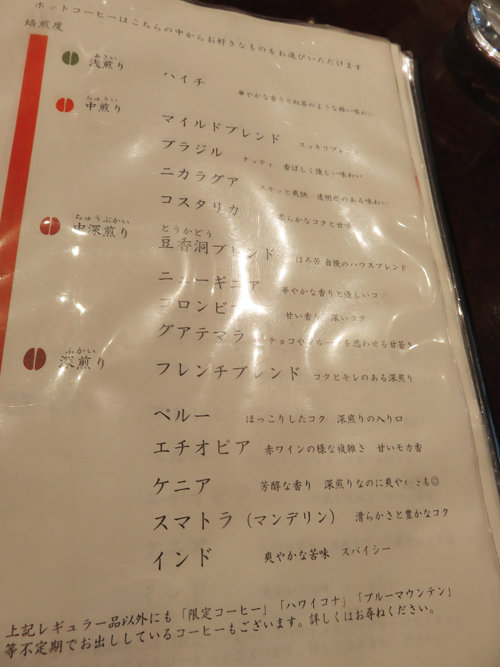 ホットコーヒーはこちらの中からお好きなものをお選びいただけます
焙煎度
あさい
浅煎り
ハイチ 華やかな香りと紅茶のような軽い味わい
ちゅうい
中煎り
マイルドブレンド スッキリブレンド
ブラジル ナッティ 香ばしく優しい味わい
ニカラグア スキッと爽快 透明感のある味わい
コスタリカ 柔らかなコクと甘味
ちゅうぶかい
中深煎り
とうかどう
豆香洞ブレンド ほろ苦 自慢のハウスブレンド
ニューギニア 華やかな香りと優しいコ
コロンビア 甘い香り 深いコク
グアテマラ チョコや を思わせる甘苦さ
ふかい
深煎り
フレンチブレンド コクとキレのある深煎り
ペルー ほっこりしたコク 深煎りの入り口
エチオピア 赤ワインの様な複雑さ 甘いモカ香
ケニア 芳醇な香り 深煎りなのに爽やかさも◎
スマトラ(マンデリン) 滑らかさと豊かなコク
インド 爽やかな苦味 スパイシー
上記レギュラー品以外にも「限定コーヒー」「ハワイコナ」「ブルーマウンテン」
等不定期でお出ししているコーヒーもございます。詳しくはお尋ねください。